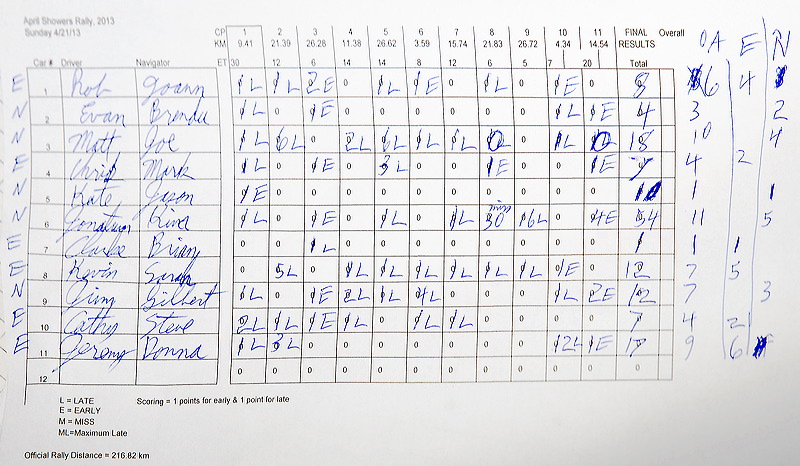 April Showers Rally, 2013
Sunday 4/21/13
CP 1 2 3 4 5 6 7 8 9 10 11 FINAL Overall OA E N
KM 9.41 21.39 26.28 11.38 26.62 3.59 15.74 21.83 26.72 4.34 14.54 RESULTS
Car # Driver Navigator ET 30 12 6 14 14 8 12 6 5 7 20 Total
E 1 Rob Joann 1L 1L 2E 0 1L 1E 0 1L 0 1E 0 8 6 4
N 2 Evan Brenda 1L 0 1E 0 0 0 0 0 0 1L 1E 4 3 2
N 3 Matt Joe 1L 6L 0 2L 6L 1L 1L 0 0 1L 0 18 10 4
E 4 Chris Mark 1L 0 1E 0 3L 0 0 1E 0 0 1E 7 4 2
N 5 Kate Jason 1E 0 0 0 0 0 0 0 0 0 0 1 1 1
N 6 Jonathan Kiva 1L 0 1E 0 1L 0 1L miss 30 16L 0 4E 54 11 5
E 7 Clarke Brian 0 0 1L 0 0 0 0 0 0 0 0 1 1 1
E 8 Kevin Sarah 0 5L 0 1L 1L 1L 1L 1L 1L 1E 0 12 7 5
N 9 Jim Gilbert 1L 0 1E 2L 1L 4L 0 0 0 1L 2E 12 7 3
E 10 Cathy Steve 2L 1L 1E 1L 0 1L 1L 0 0 0 0 7 4 2
E 11 Jeremy Donna 1L 3L 0 0 0 0 0 0 0 12L 1E 17 9 6
12 0 0 0 0 0 0 0 0 0 0 0
L = LATE Scoring = 1 points for early & 1 point for late
E = EARLY
M = MISS
ML=Maximum Late
Official Rally Distance = 216.82 km